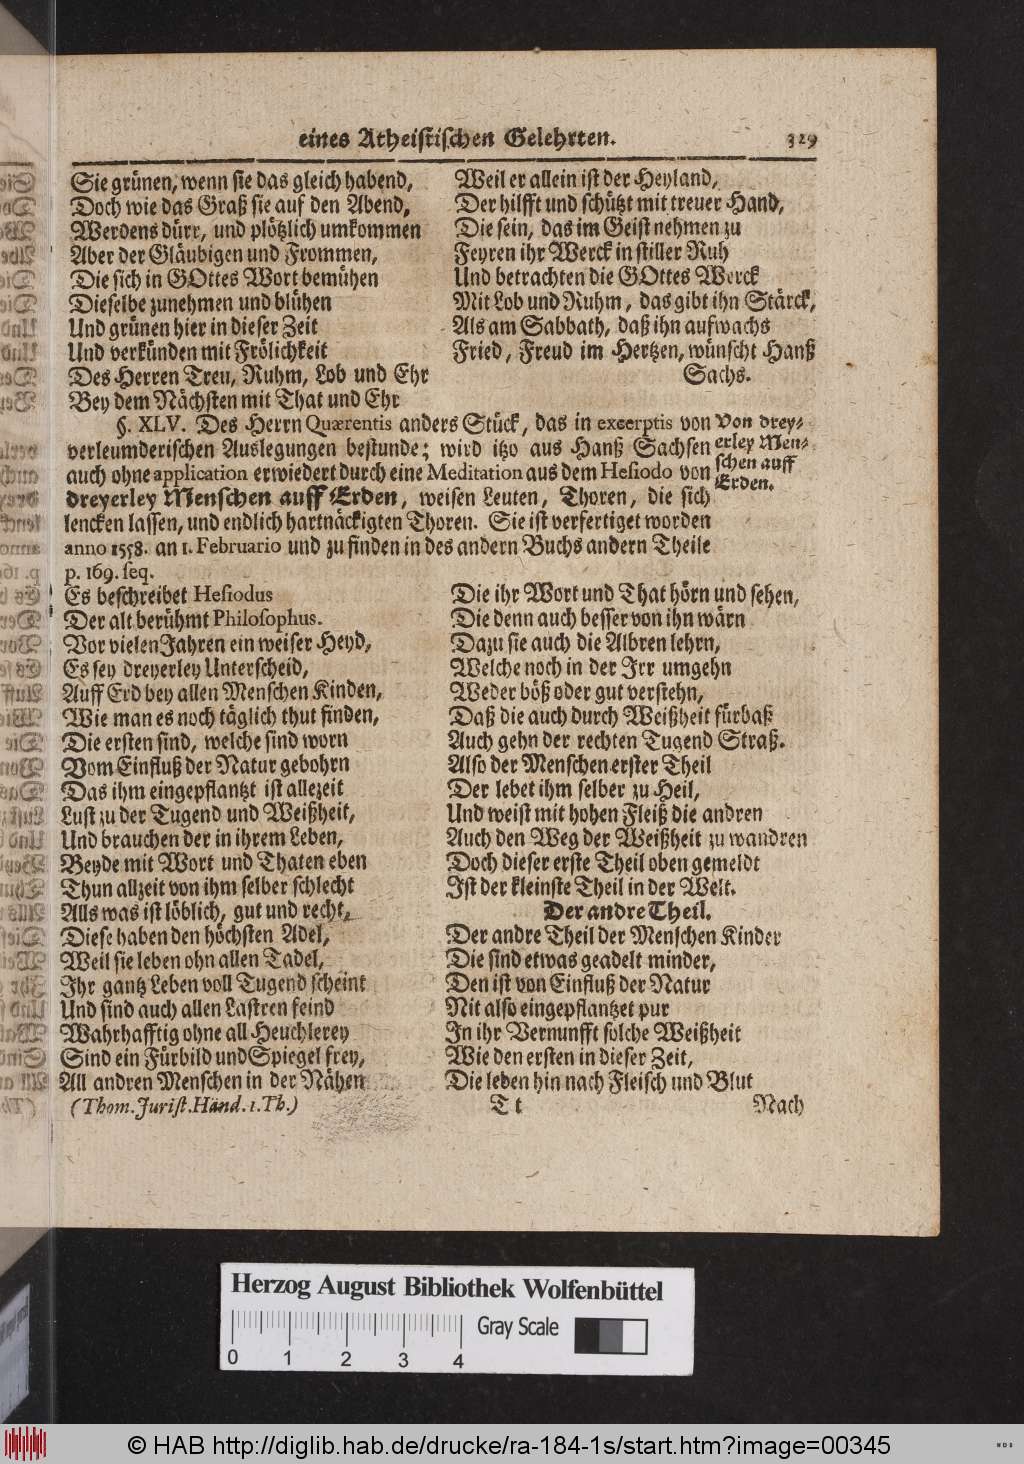 eines Atheistischen Gelehrten. 329
Sie grünen, wenn sie das gleich habend,
Doch wie das Graß sie auf den Abend,
Werdens dürr, und plötzlich umkommen
Aber der Gläubigen und Frommen,
Die sich in GOttes Wort bemühen
Dieselbe zunehmen und blühen
Und grünen hier in dieser Zeit
Und verkünden mit Frölichkeit
Des Herren Treu, Ruhm, Lob und Ehr
Bey dem Nächsten mit That und Ehr
Weil er allein ist der Heyland,
Der hilfft und schützt mit treuer Hand,
Die sein, das im Geist nehmen zu
Feyren ihr Werck in stiller Ruh
Und betrachten die GOttes Werck
Mit Lob und Ruhm, das gibt ihn Stärck,
Als am Sabbath, daß ihn aufwachs
Fried, Freud im Hertzen, wünscht Hanß
Sachs.
§. XLV. Des Herrn Quærentis anders Stück, das in excerptis von
verleumderischen Auslegungen bestunde; wird itzo aus Hanß Sachsen
auch ohne application erwiedert durch eine Meditation aus dem Hesiodo von
dreyerley Menschen auff Erden, weisen Leuten, Thoren, die sich
lencken lassen, und endlich hartnäckigten Thoren. Sie ist verfertiget worden
anno 1558. an 1. Februario und zu finden in des andern Buchs andern Theile
p. 169. seq.
Von drey-
erley Men-
schen auff
Erden.
Es beschreibet Hesiodus
Der alt berühmt Philosophus.
Vor vielen Jahren ein weiser Heyd,
Es sey dreyerley Unterscheid,
Auff Erd bey allen Menschen Kinden,
Wie man es noch täglich thut finden,
Die ersten sind, welche sind worn
Vom Einfluß der Natur gebohrn
Das ihm eingepflantzt ist allezeit
Lust zu der Tugend und Weißheit,
Und brauchen der in ihrem Leben,
Beyde mit Wort und Thaten eben
Thun allzeit von ihm selber schlecht
Alls was ist löblich, gut und recht,
Diese haben den höchsten Adel,
Weil sie leben ohn allen Tadel,
Ihr gantz Leben voll Tugend scheint
Und sind auch allen Lastren feind
Wahrhafftig ohne all Heuchlerey
Sind ein Fürbild und Spiegel frey,
All andren Menschen in der Nähen
Die ihr Wort und That hörn und sehen,
Die denn auch besser von ihn wärn
Dazu sie auch die Albren lehrn,
Welche noch in der Irr umgehn
Weder böß oder gut verstehn,
Daß die auch durch Weißheit fürbaß
Auch gehn der rechten Tugend Straß.
Also der Menschen erster Theil
Der lebet ihm selber zu Heil,
Und weist mit hohen Fleiß die andren
Auch den Weg der Weißheit zu wandren
Doch dieser erste Theil oben gemeldt
Ist der kleinste Theil in der Welt.
Der andre Theil.
Der andre Theil der Menschen Kinder
Die sind etwas geadelt minder,
Den ist von Einfluß der Natur
Nit also eingepflantzet pur
In ihr Vernunfft solche Weißheit
Wie den ersten in dieser Zeit,
Die leben hin nach Fleisch und Blut
(Thom. Jurist. Händ. 1. Th.) T t Nach
Herzog August Bibliothek Wolfenbüttel
Gray Scale
0 1 2 3 4
© HAB http://diglib.hab.de/drucke/ra-184-1s/start.htm?image=00345